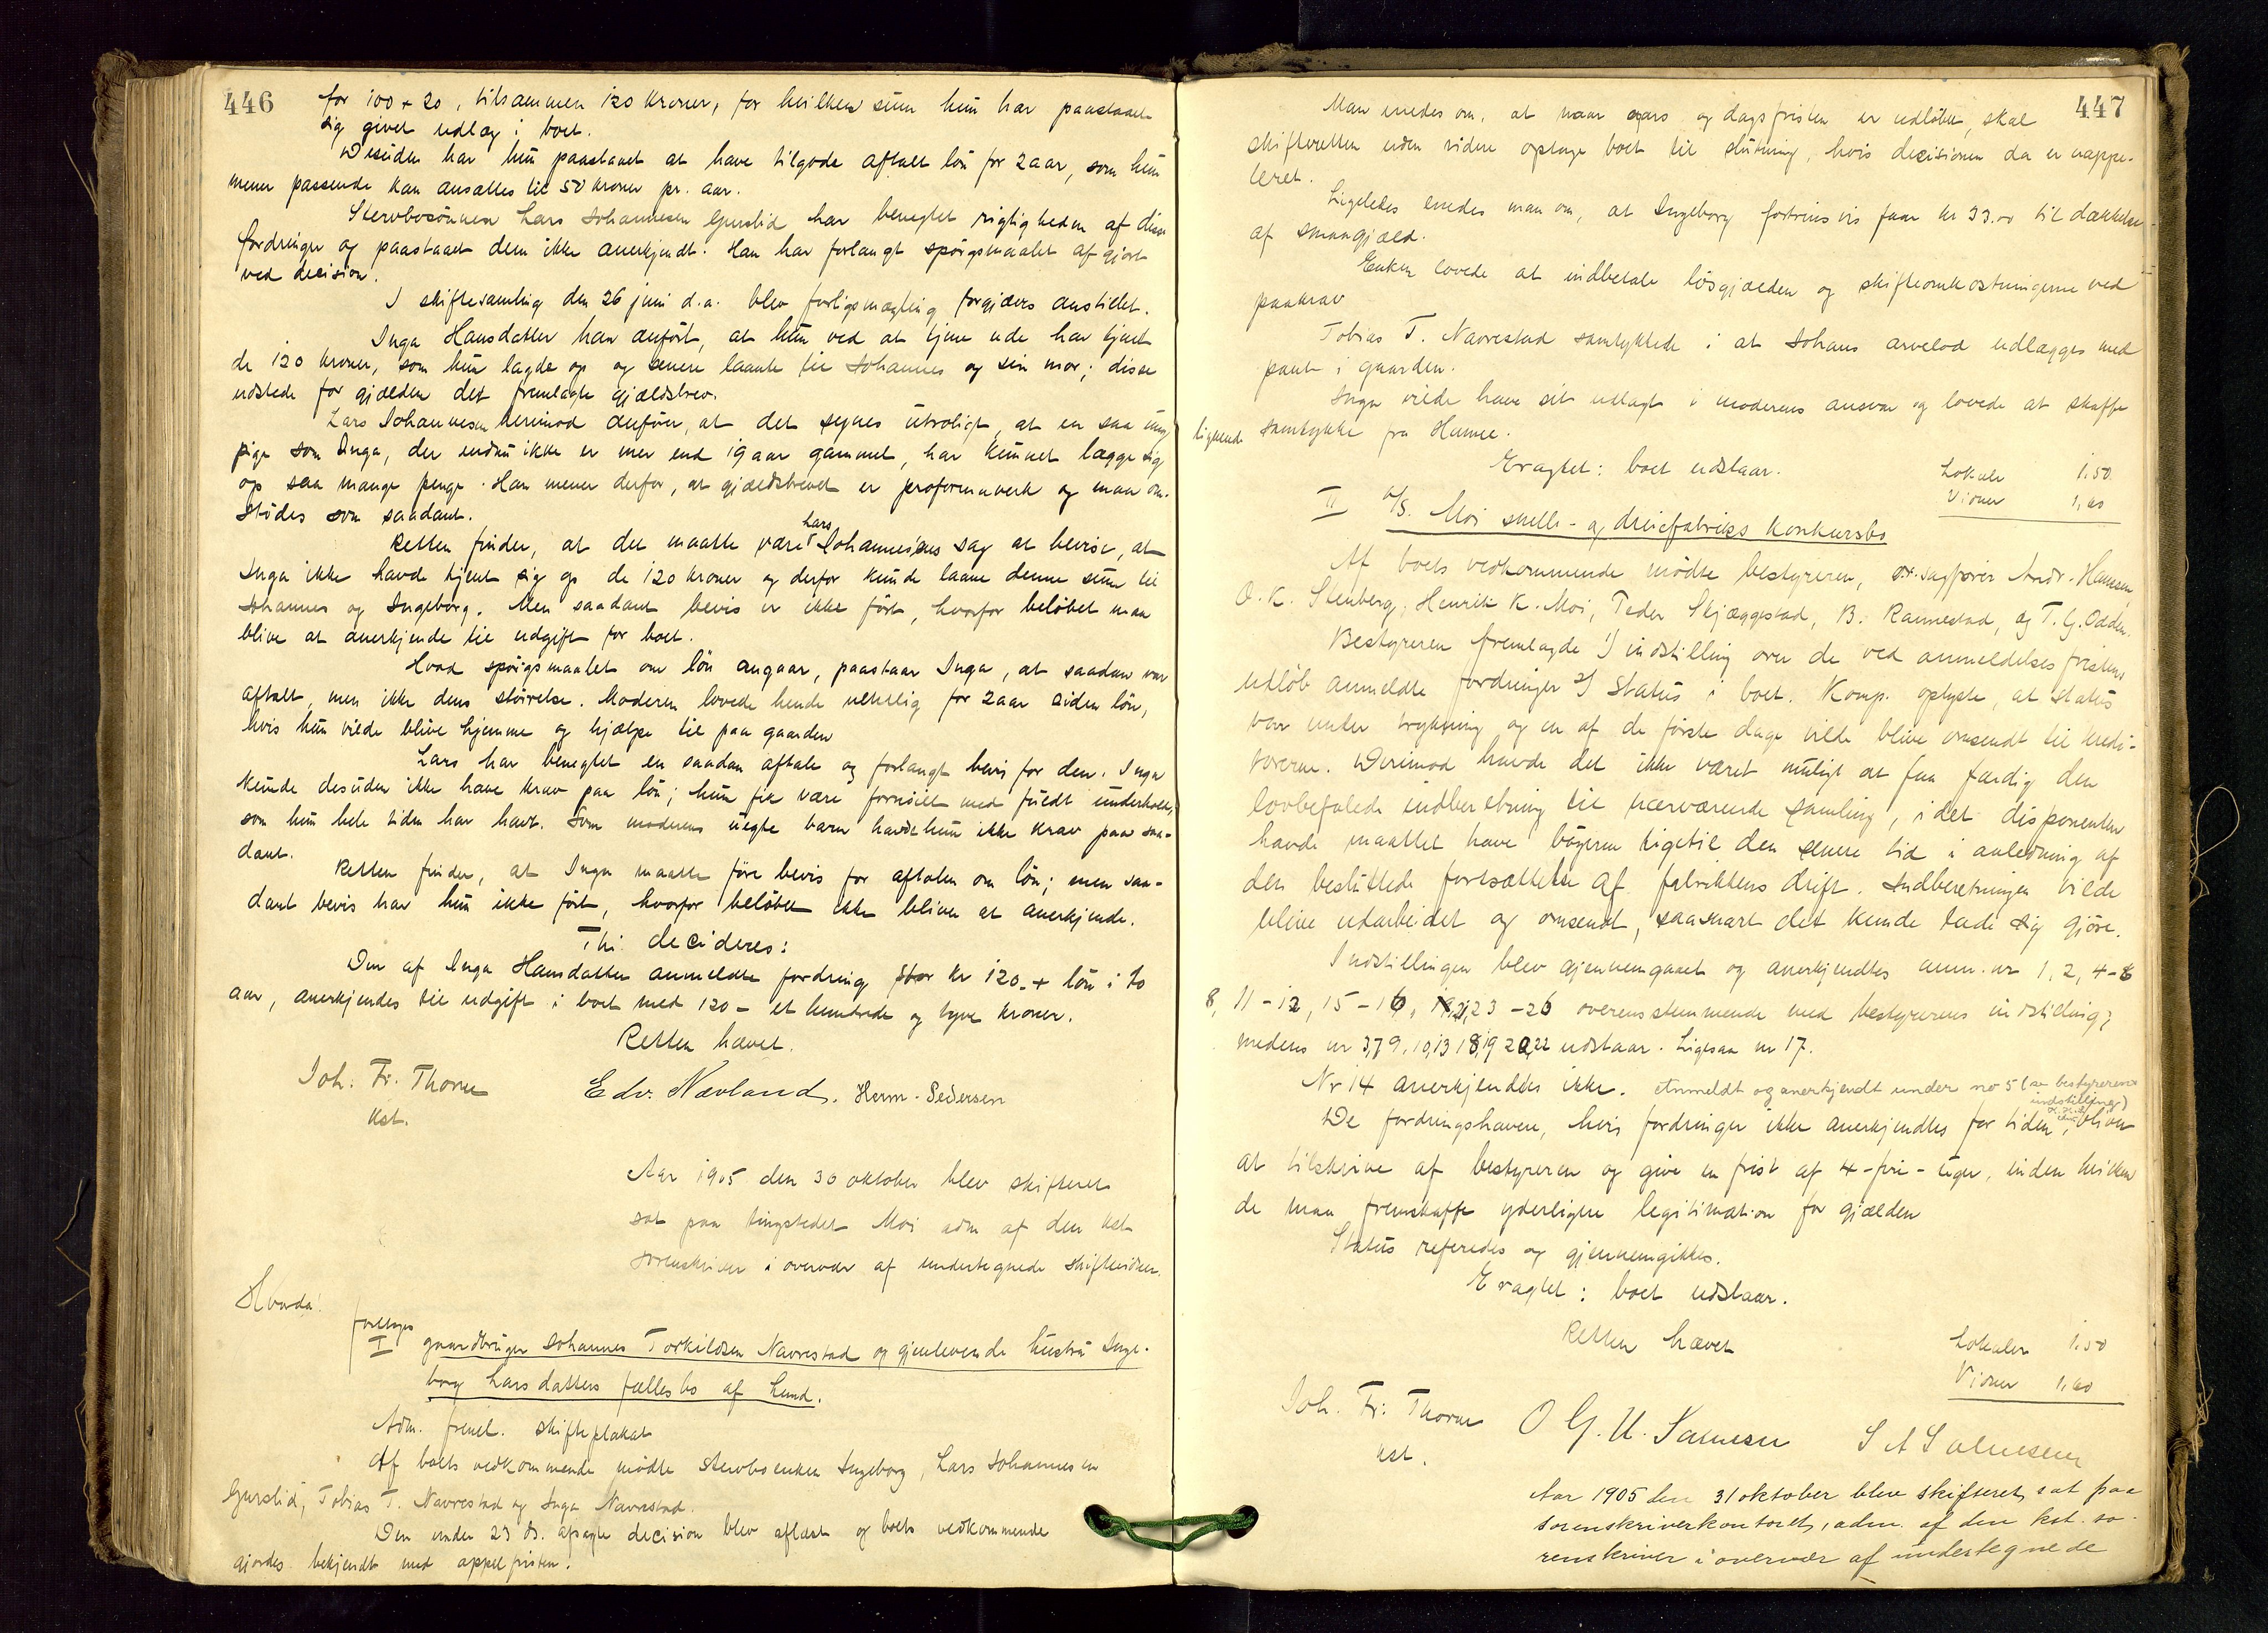 446
for 100 + 20, tilsammen 120 kroner, for hvilken sum hun har paastaaet
sig givet udlæg i boet.
Desuden har hun paastaaet at have tilgode aftalt løn for 2 aar, som hun
mener passende kan ansættes til 50 kroner pr. aar.
Stervbosønnen Lars Johannesen Gurslid har benegtet rigtigheden af disse
fordringer og paastaaet dem ikke anerkjendt. Han har forlangt spørgsmaalet afgjort
ved decision.
I skiftesamling den 26 juni d.a. blev forligsmægling forgjæves anstillet.
Inga Hansdatter har anført, at hun ved at tjene ude har tjent
de 120 kroner, som hun lagde op og senere laante til Johannes og sin mor; disse
udstede for gjælden det fremlagte gjældsbrev.
Lars Johannesen derimod anfører, at det synes utroligt, at en saa ung
pige som Inga, der endnu ikke er mer end 19 aar gammel, har kunnet lægge sig
op saa mange penge. Han mener derfor, at gjældsbrevet er proformaverk og maa om-
stødes som saadant.
Retten finder, at det maatte være Lars Johannesens sag at bevise, at
Inga ikke havde tjent sig op de 120 kroner og derfor kunde laane denne sum til
Johannes og Ingeborg. Men saadant bevis er ikke ført, hvorfor beløbet maa
blive at anerkjende til udgift for boet.
Hvad spørgsmaalet om løn angaar, paastaar Inga, at saadan var
aftalt, men ikke dens størrelse. Moderen lovede hende nemlig for 2 aar siden løn,
hvis hun vilde blive hjemme og hjælpe til paa gaarden
Lars har benegtet en saadan aftale og forlangt bevis for den. Inga
kunde desuden ikke have krav paa løn; hun fik være fornøiet med fuldt underhold,
som hun hele tiden har havt. Som moderens uegte barn havde hun ikke krav paa saa-
dant.
Retten finder, at Inga maatte føre bevis for aftalen om løn; men saa-
dant bevis har hun ikke ført, hvorfor beløbet ikke bliver at anerkjende.
Thi decideres:
Den af Inga Hansdatter anmeldte fordring stor kr 120.- + løn i to
aar, anerkjendes til udgift i boet med 120 - et hundrede og tyve kroner.
Retten hævet.
Joh. Fr. Thorne
kst.
Edv. Nævland. Herm. Pedersen
Aar 1905 den 30 oktober blev skifteret
sat paa tingstedet Moi adm af den kst
sorenskriver i overvær af undertegnede skiftevidner.
Hvorda!
foretages
I gaardbruger Johannes Torkildsen Navrestad og gjenlevende hustru Inge-
borg Larsdatters fællesbo af Lund.
Adm. freml. skifteplakat
Af boets vedkommende mødte stervboenken Ingeborg, Lars Johannesen
Gurslid, Tobias T. Navrestad og Inga Navrestad.
Den under 23 ds. afsagte decision blev oplæst og boets vedkommende
gjordes bekjendt med appelfristen.
447
Man enedes om, at naar aars og dagsfristen er udløbet, skal
skifteretten uden videre optage boet til slutning, hvis decisionen da er uappe-
leret.
Ligeledes enedes man om, at Ingeborg fortrinsvis faar kr 33.00 til dækkelse
af smaagjæld.
Enken lovede at indbetale løsgjælden og skifteomkostningerne ved
paakrav
Tobias T. Navrestad samtykkede i at Johans arvelod udlægges med
pant i gaarden.
Inga vilde have sit udlagt i moderens ansvar og lovede at skaffe
lignende samtykke fra
Eragtet: boet udstaar.
Lokaler 1.50
Vidner 1,20
II A/S. Moi snelle- og dreiefabriks konkursbo
Af boets vedkommende mødte bestyreren, o.r.sagfører Andr. Hansen,
O. K. Stenberg, Henrik K. Moi, Peder Skjæggestad, B. Rannestad, og T. G. Odden.
Bestyreren fremlagde 1) indstilling over de ved anmeldelsesfristens
udløb anmeldte fordringer 2) status i boet. Komp. oplyste, at status
var under trykning og en af de første dage vilde blive omsendt til kredi-
torerne. Derimod havde det ikke været muligt at faa færdig den
lovbefalede indberetning til nærværende samling, idet disponenten
havde maattet have bøgerne ligetil den senere tid i anledning af
den besluttede fortsættelse af fabrikkens drift. Indberetningen vilde
blive udarbeidet og omsendt, saasnart det kunde lade sig gjøre.
Indstillingen blev gjennemgaaet og anerkjendtes anm. nr 1, 2, 4-6
8, 11-12, 15-16, 21, 23-26 overensstemmende med bestyrerens indstilling;
medens nr 3, 7, 9, 10, 13, 18, 19, 20, 22 udstaar. Ligesaa nr 17.
Nr 14 anerkjendtes ikke. Anmeldt og anerkjendt under no 5 (se bestyrerens
indstilling)
De fordringshavere, hvis fordringer ikke anerkjendtes for tiden, bliver
at tilskrive af bestyreren og give en frist af 4-fire-uger, inden hvilken
de maa fremskaffe yderligere legitimation for gjælden
Status referedes og gjennemgikkes.
Eragtet: boet udstaar.
Retten hævet
Lokaler 1.50
Vidner 1,20
Joh. Fr. Thorne
kst.
O G. U. Samesen
S A Salmesen
Aar 1905 den 31 oktober blev skifteret sat paa
sorenskriverkontoret, adm. af den kst. so-
renskriver i overvær af undertegnede